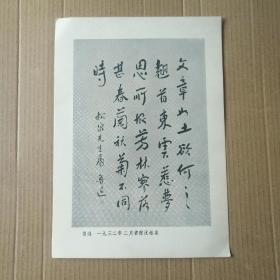 文章如土欲何之
翹首東雲惹夢
思所恨芳林寥落
甚春蘭秋菊不同
時
松泉先生屬 魯迅
偶成 一九三二年三月書贈沈松泉